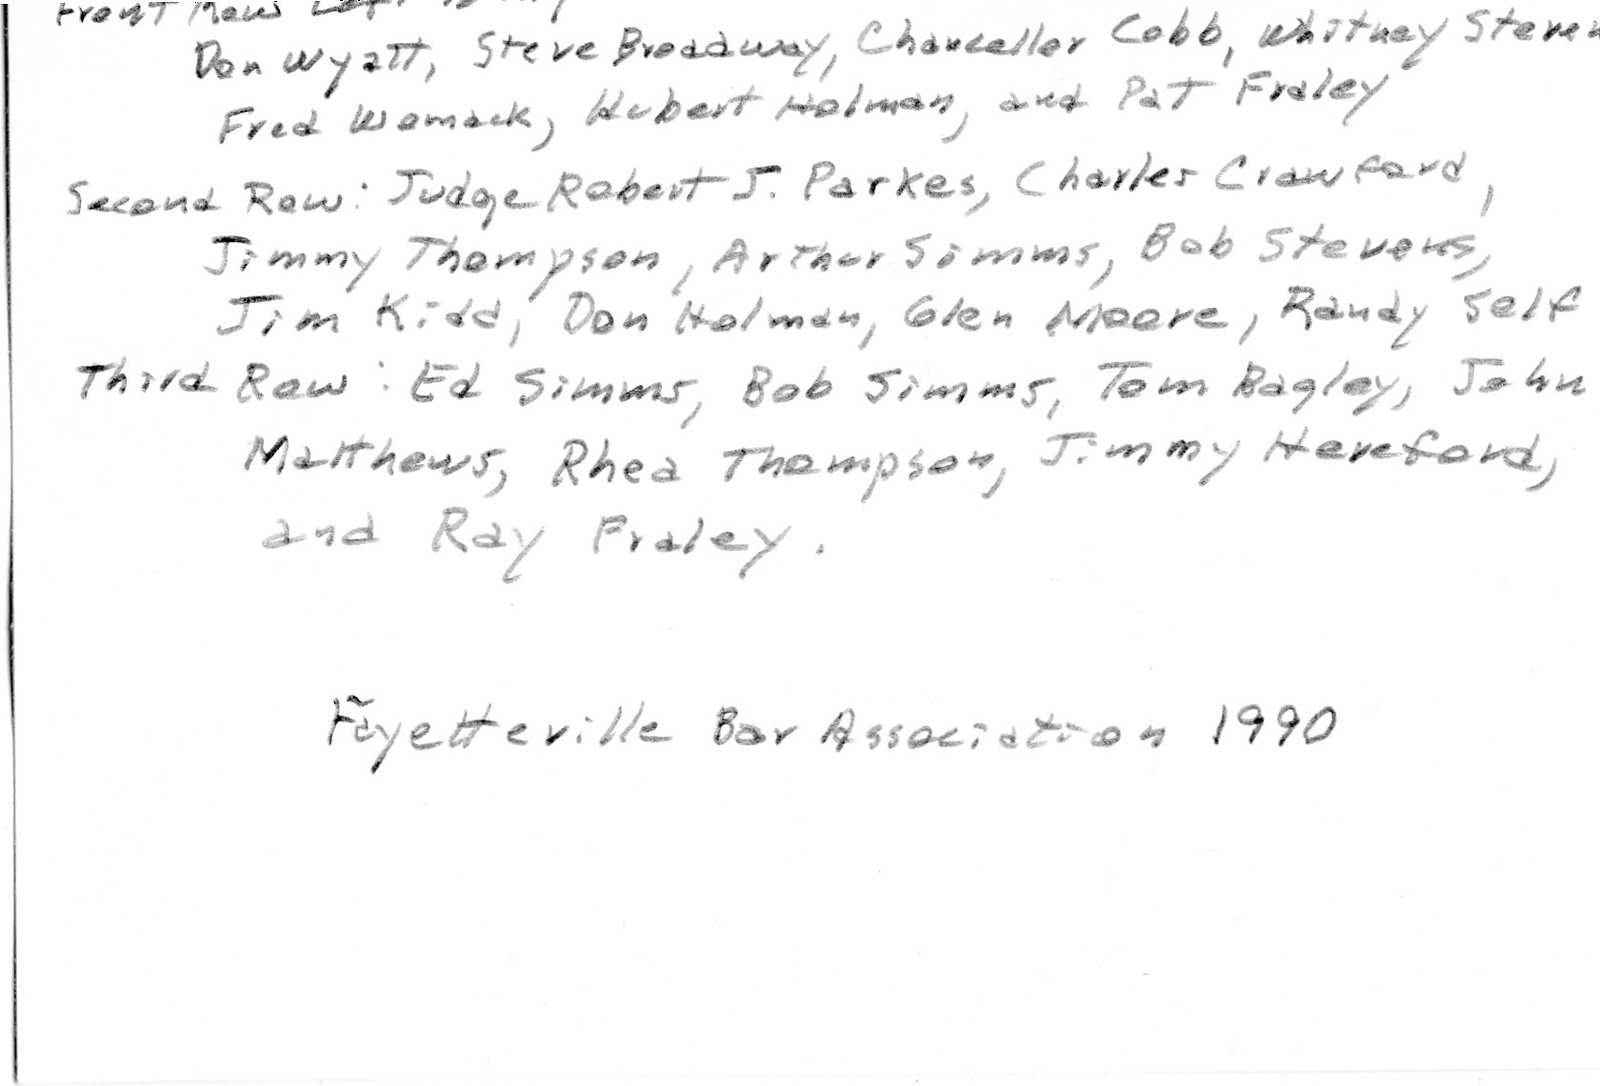 Front Row Left to
Don Wyatt, Steve Broadway, Chancellor Cobb, Whitney Steven
Fred Womack, Hubert Holman, and Pat Fraley
Second Row: Judge Robert J. Parkes, Charles Crawford,
Jimmy Thompson, Arthur Simms, Bob Stevens,
Jim Kidd, Don Holman, Glen Moore, Randy Self
Third Row: Ed Simms, Bob Simms, Tom Bagley, John
Matthews, Rhea Thompson, Jimmy Hereford,
and Ray Fraley.
Fayetteville Bar Association 1990